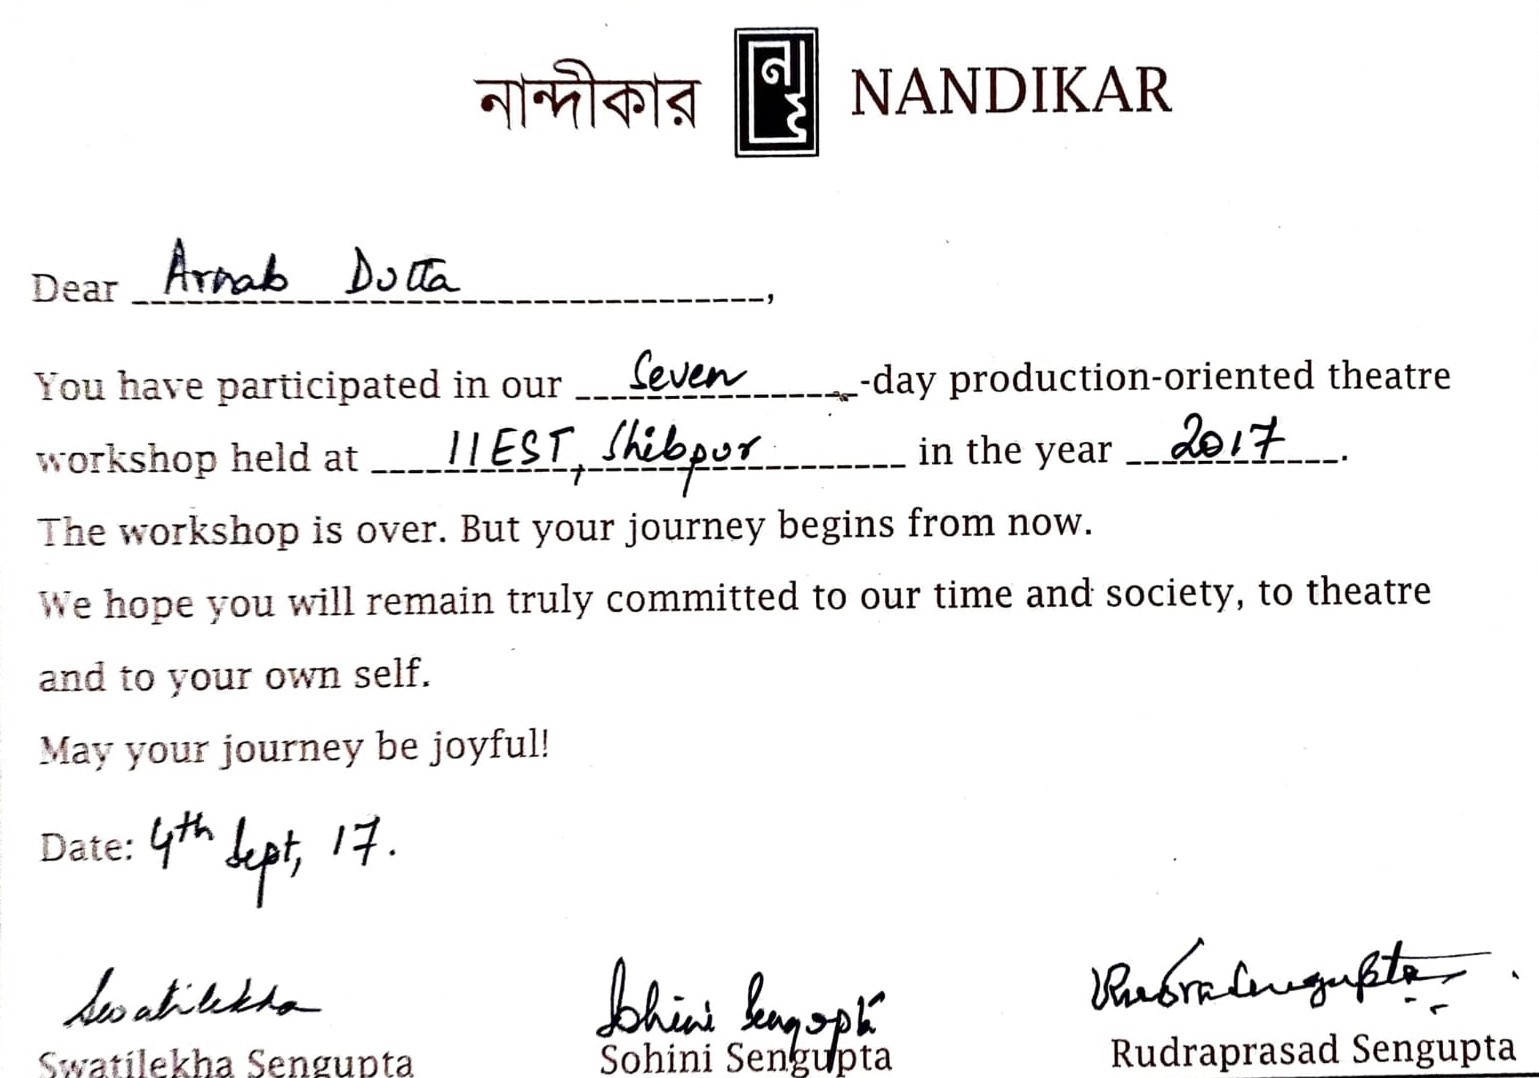 নান্দীকার NANDIKAR
Dear Arnab Dutta,
You have participated in our Seven -day production-oriented theatre
workshop held at IIEST, Shibpur in the year 2017.
The workshop is over. But your journey begins from now.
We hope you will remain truly committed to our time and society, to theatre
and to your own self.
May your journey be joyful!
Date: 4th Sept, 17.
Swatilekha Sohini Sengupta Rudra Sengupta
Swatilekha Sengupta Sohini Sengupta Rudraprasad Sengupta